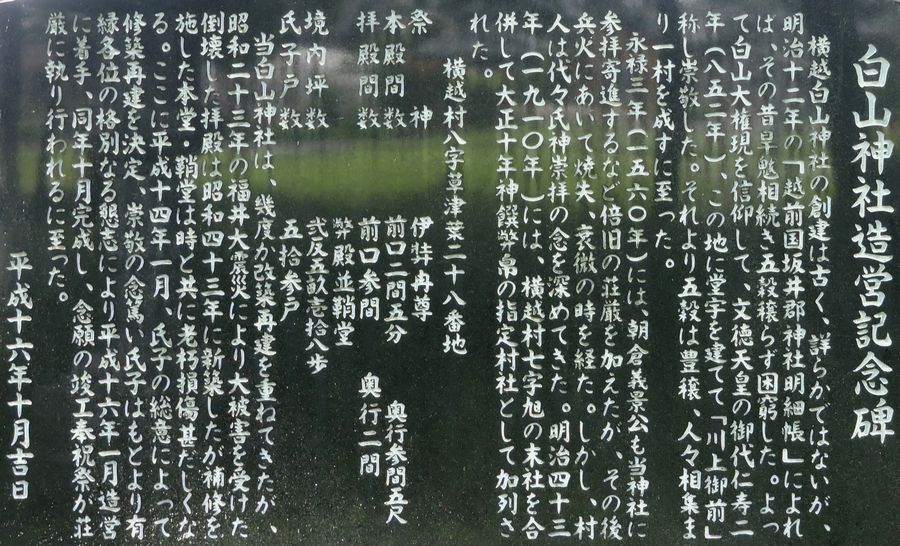 白山神社造営記念碑
横越白山神社の創建は古く、詳らかではないが、
明治十二年の「越前国坂井郡神社明細帳」によれ
ば、その昔旱魃相続き五穀穣らず困窮した。よっ
て白山大権現を信仰して、文徳天皇の御代仁寿二
年(八五二年)、この地に堂宇を建てて「川上御前」
称し崇敬した。それより五穀は豊穣、人々相集ま
り一村を成すに至った。
永禄三年(一五六〇年)には、朝倉義景公も当神社に
参拝寄進するなど倍旧の荘厳を加えたが、その後
兵火にあいて焼失、衰微の時を経た。しかし、村
人は代々氏神崇拝の念を深めてきた。明治四十三
年(一九一〇年)には、横越村七字旭の末社を合
併して大正十年神饌幣帛の指定村社として加列さ
れた。
横越村八字草津葉二十八番地
祭神 伊弉冉尊
本殿間数 前口二間五分 奥行参間五尺
拝殿間数 前口参間 奥行二間
幣殿並鞘堂
境内坪数 弐反五畝壱拾八歩
氏子戸数 五拾参戸
当白山神社は、幾度か改築再建を重ねてきたが、
昭和二十三年の福井大震災により大被害を受けた
倒壊した拝殿は昭和四十三年に新築したが補修を
施した本堂・鞘堂は時と共に老朽損傷甚だしくな
る。ここに平成十四年一月、氏子の総意によって
修築再建を決定、崇敬の念篤い氏子はもとより有
縁各位の格別なる懇志により平成十六年一月造営
に着手、同年十月完成し、念願の竣工奉祝祭が荘
厳に執り行われるに至った。
平成十六年十月吉日